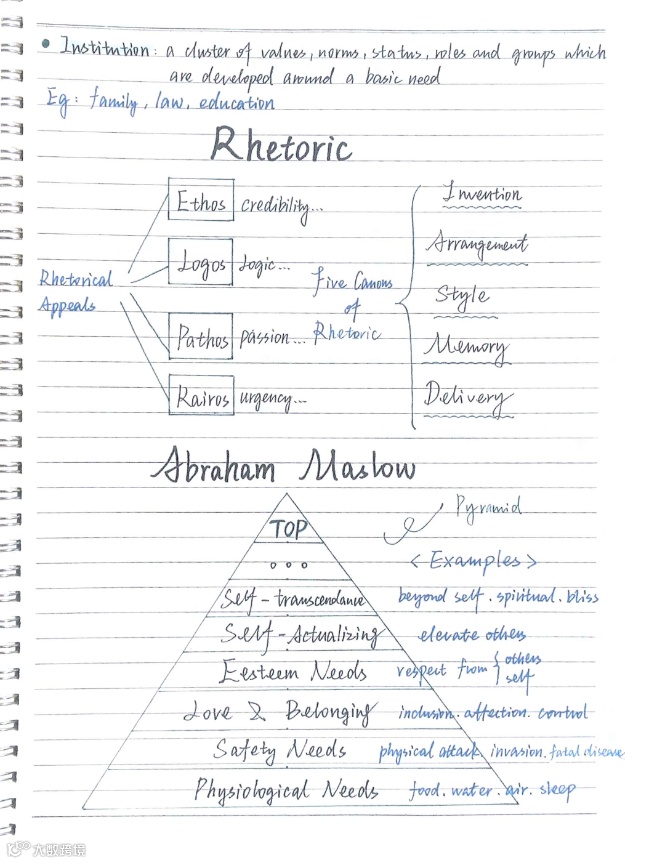 • Institution: a cluster of values, norms, status, roles and groups which
are developed around a basic need
Eg: family, law, education
Rhetoric
Rhetorical
Appeals
Ethos credibility...
Logos logic...
Pathos passion...
Kairos urgency...
Five Canons
of
Rhetoric
Invention
Arrangement
Style
Memory
Delivery
Abraham Maslow
Pyramid
<Examples>
TOP
○ ○ ○
Self-transcendance beyond self. spiritual. bliss
Self-Actualizing elevate others
Eesteem Needs respect from { others
self
Love & Belonging inclusion. affection. control
Safety Needs physical attack, invasion. fatal disease
Physiological Needs food. water. air. sleep
大数跨境